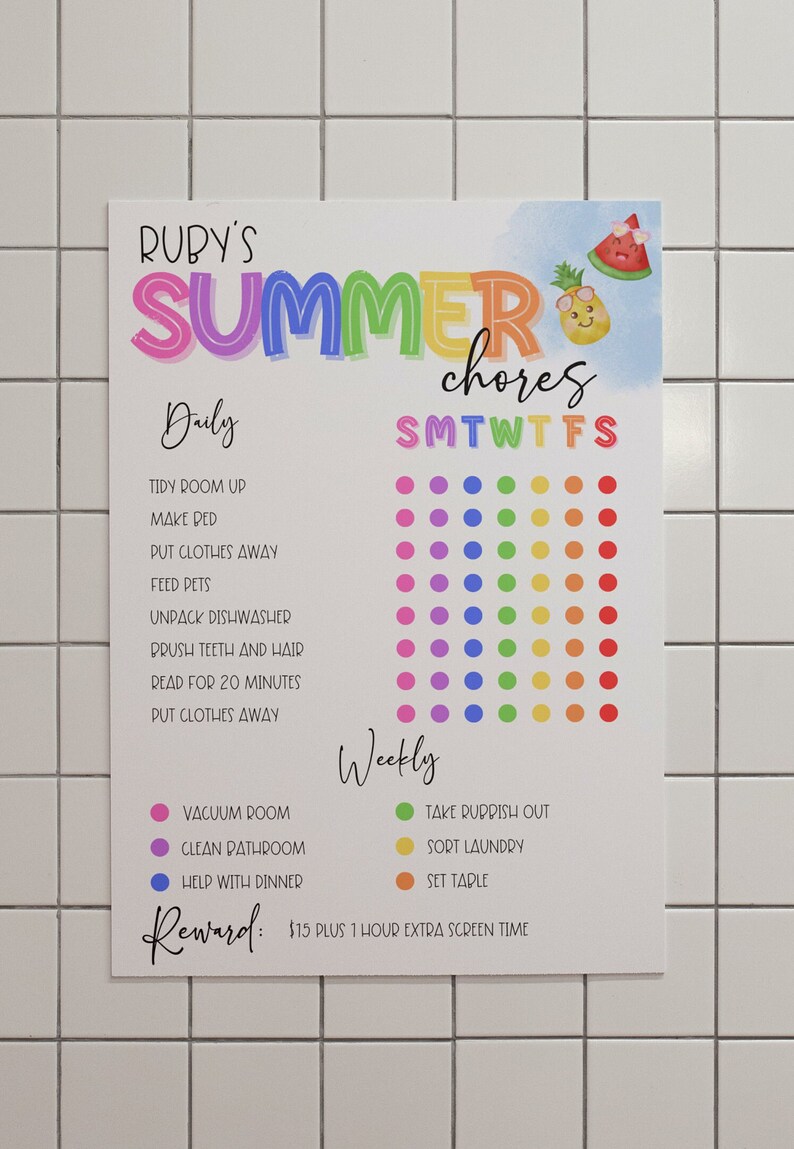 RUBY'S
SUMMER
chores
Daily
S M T W T F S
TIDY ROOM UP
MAKE BED
PUT CLOTHES AWAY
FEED PETS
UNPACK DISHWASHER
BRUSH TEETH AND HAIR
READ FOR 20 MINUTES
PUT CLOTHES AWAY
Weekly
VACUUM ROOM
TAKE RUBBISH OUT
CLEAN BATHROOM
SORT LAUNDRY
HELP WITH DINNER
SET TABLE
Reward: $15 PLUS 1 HOUR EXTRA SCREEN TIME